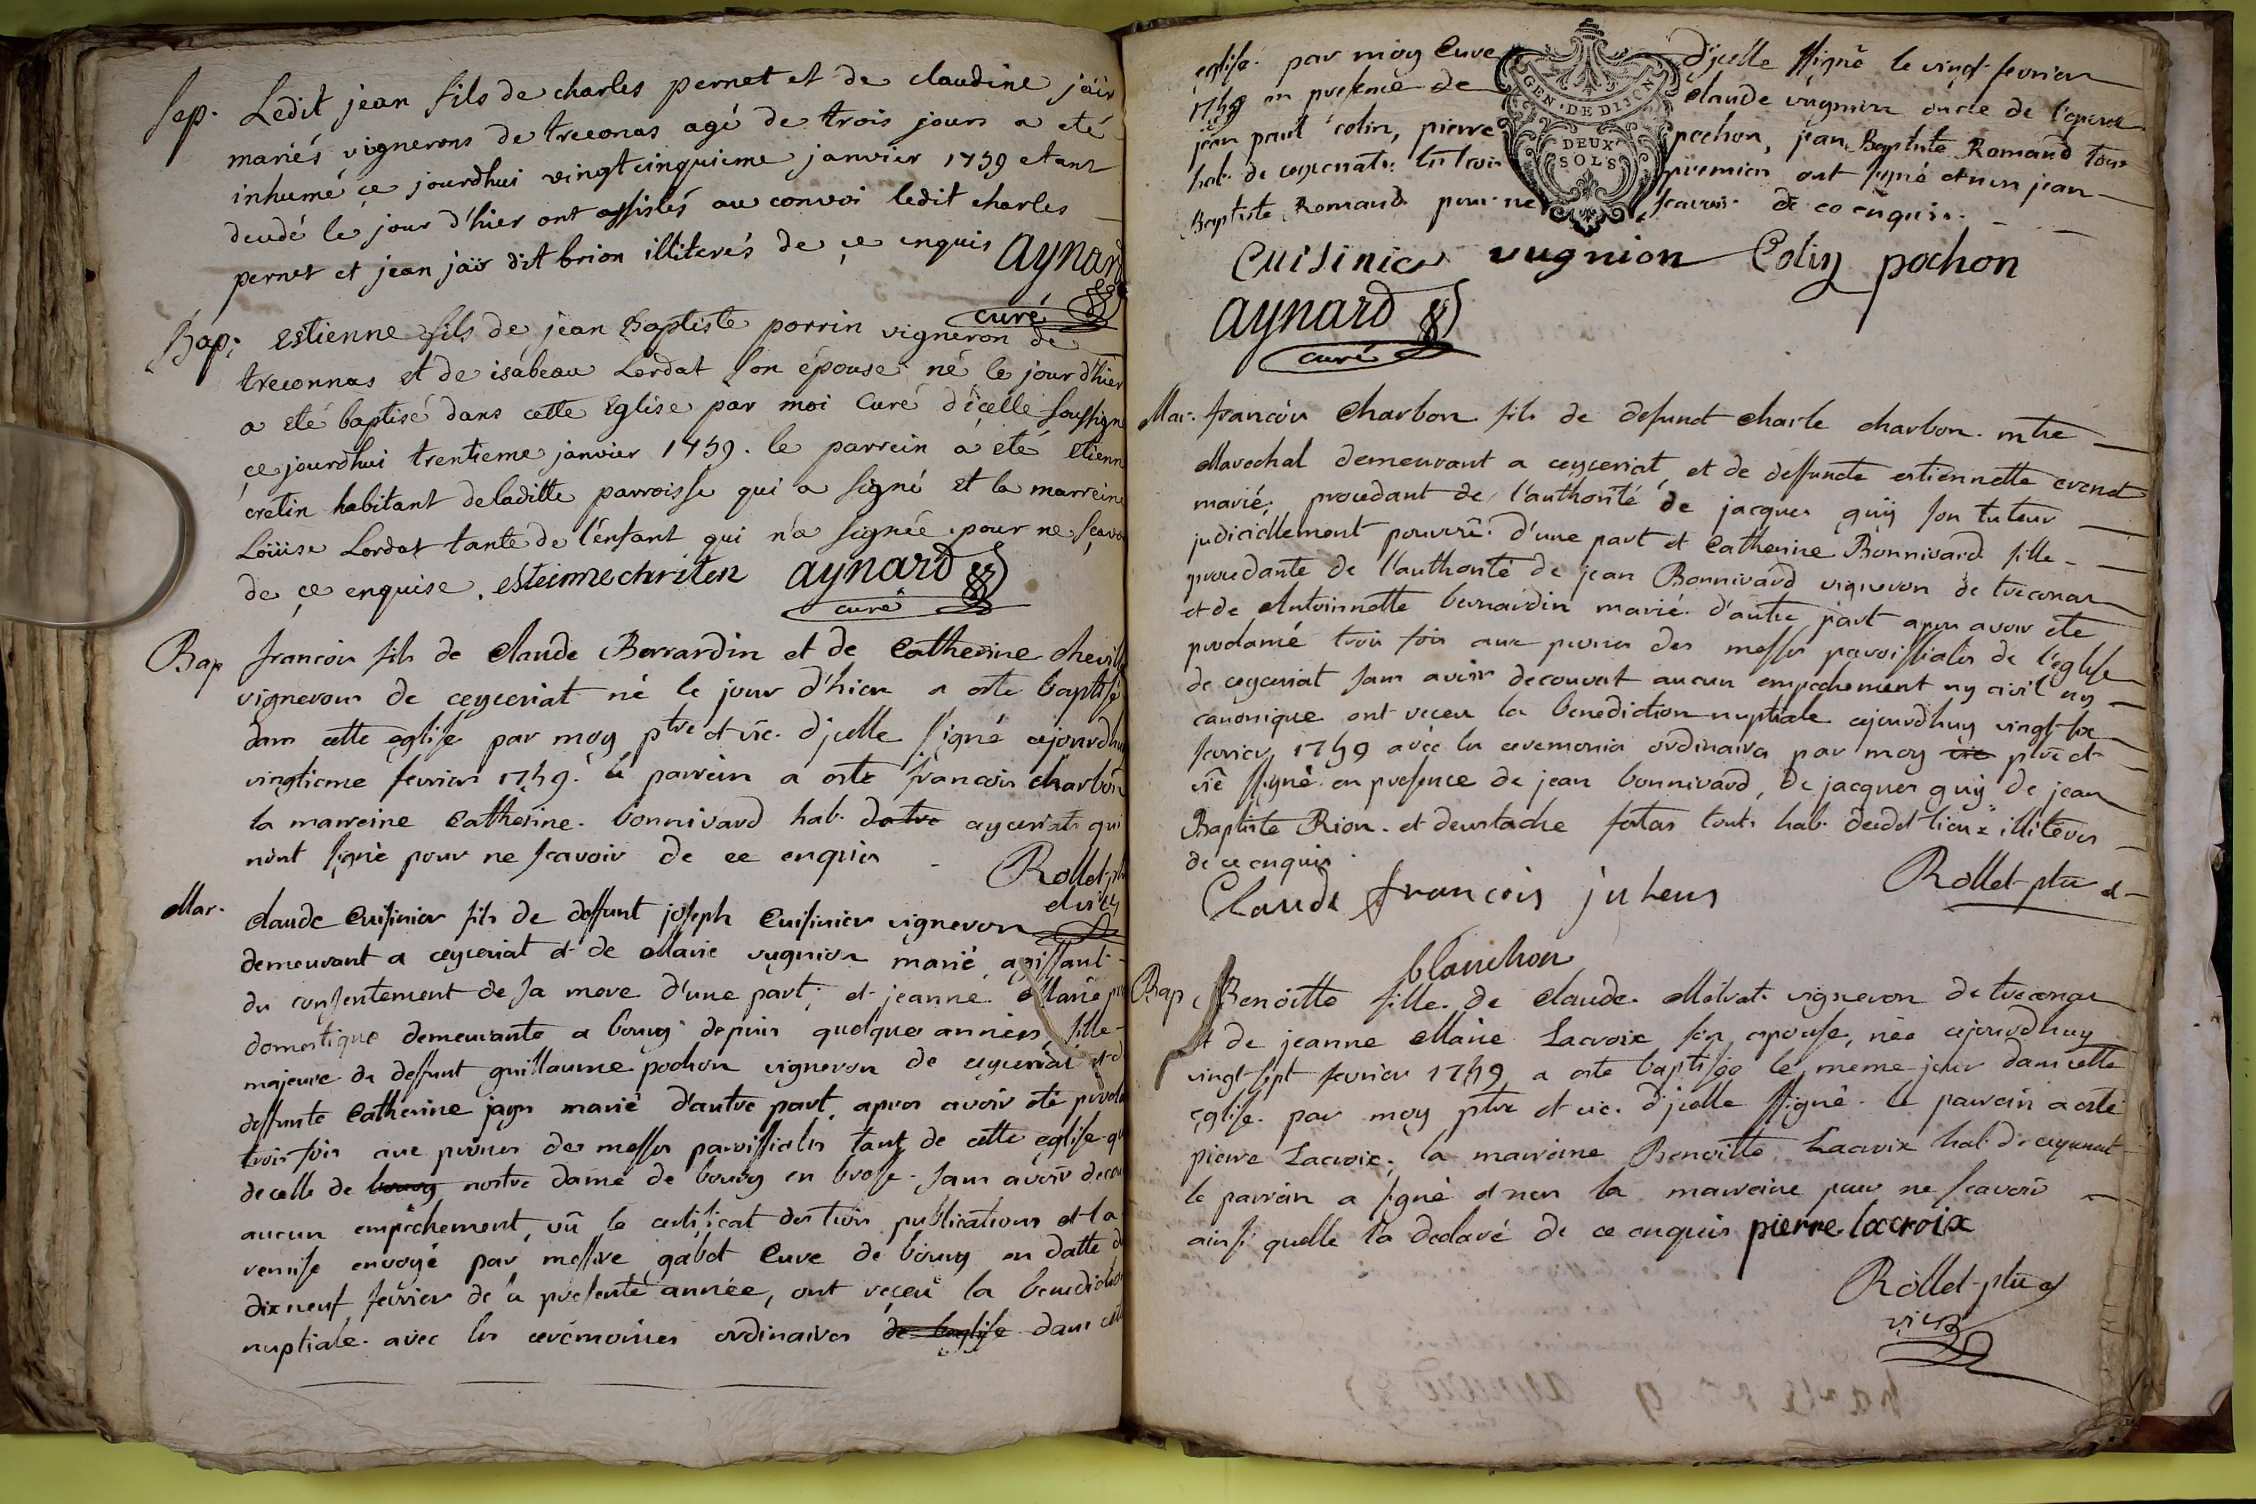 Sep. Ledit jean fils de charles pernet et de claudine jaïr
mariés vignerons de treconas agé de trois jours a eté
inhumé ce jourdhui vingtcinquieme janvier 1759 etant
decedé le jour d'hier ont assistés au convoi ledit charles
pernet et jean jaïr dit brion illiterés de ce enquis aynard
curé
Bap. Estienne fils de jean Baptiste perrin vigneron de
treconnas et de isabeau Lordat son épouse né le jour d'hier
a eté baptisé dans cette Eglise par moi Curé d'icelle soussigné
ce jourdhui trentieme janvier 1759. le parrein a eté etienn
cretin habitant de laditte parroisse qui a signé et la marreine
Loüise Lordat tante de l'enfant qui n'a signée pour ne sçavoi
de ce enquise. aynard
curé
Bap francois fils de Claude Bernardin et de Catherine chevill
vignerons de ceyceriat né le jour d'hier a esté baptisé
dans cette eglise par moy ptre et vic. d'jcelle signé cejourdhuy
vingtieme fevrier 1759. le parrein a esté francois charbon
la marreine Catherine bonnivard hab. ayceriat qui
n'ont signé pour ne scavoir de ce enquis
Rollet ptre
et vic
Mar. claude Cuisinier fils de deffunt joseph Cuisinier vigneron
demeurant a ceyceriat et de Marie vugnion marié agissant
du consentement de sa mere d'une part; et jeanne Marie
domestique demeurante a bourg depuis quelques années, fille
majeure de deffunt guillaume pochon vigneron de ceyceriat et d
deffunte Catherine jayr marié d'autre part, apres avoir eté procla
trois fois aux prones des messes parroissiales tant de cette eglise qu
de celle de bourg nostre dame de bourg en brese sans avoir decou
aucun empechement, vû le certificat des trois publications et la
remise envoyé par messire gabet Curé de bourg en datte d
dixneuf fevrier de la presente année, ont reçeu la benediction
nuptiale avec les cerémonies ordinaires de l'eglise dans cett
eglise par moy Curé d'jcelle ssigné le vingt fevrier
1759 en presence de Claude vugnion oncle de l'epoux
jean paul colin, pierre pochon, jean Baptiste Romand tous
hab. de ceyceriat. les trois premiers ont signé et non jean
Baptiste Romand pour ne scavoir de ce enquis.
GEN. DE DIJON
DEUX
SOLS
Cuisinier vugnion Colin pochon
aynard
curé
Mar. francois Charbon fils de defunct charle charbon mtre
Marechal demeurant a ceyceriat, et de deffuncte estiennette evenet
marié; procedant de l'authorité de jacques guy son tuteur
judiciellement pourveu d'une part et Catherine Bonnivard fille
procedante de l'authorité de jean Bonnivard vigneron de treconas
et de Antoinnette bernardin marié d'autre part apres avoir eté
proclamé trois fois aux prones des messes parroissiales de l'eglise
de ceyceriat sans avoir decouvert aucun empechement ny civil ny
canonique ont reçeu la benediction nuptiale cejourdhuy vingt six
fevrier 1759 avec les ceremonies ordinaires par moy vic ptre et
vic ssigné en presence de jean bonnivard, de jacques guy de jean
Baptiste Rion et deustache touts hab. dudit lieux illiteres
de ce enquis.
Claude françois Rollet ptre et
blanchon
Bap Benoitte fille de Claude Melvat vigneron de treconas
et de jeanne Marie Lacroix son epouse, née cejourdhuy
vingt sept fevrier 1759 a esté baptisée le meme jour dans cette
eglise par moy ptre et vic. d'jcelle ssigné. le parrein a esté
pierre Lacroix; la marreine Benoitte Lacroix hab. de ceyceriat
le parrein a signé et non la marreine pour ne scavoir
ainsi quelle l'a declaré de ce enquis pierre lacroix
Rollet ptre et
vic